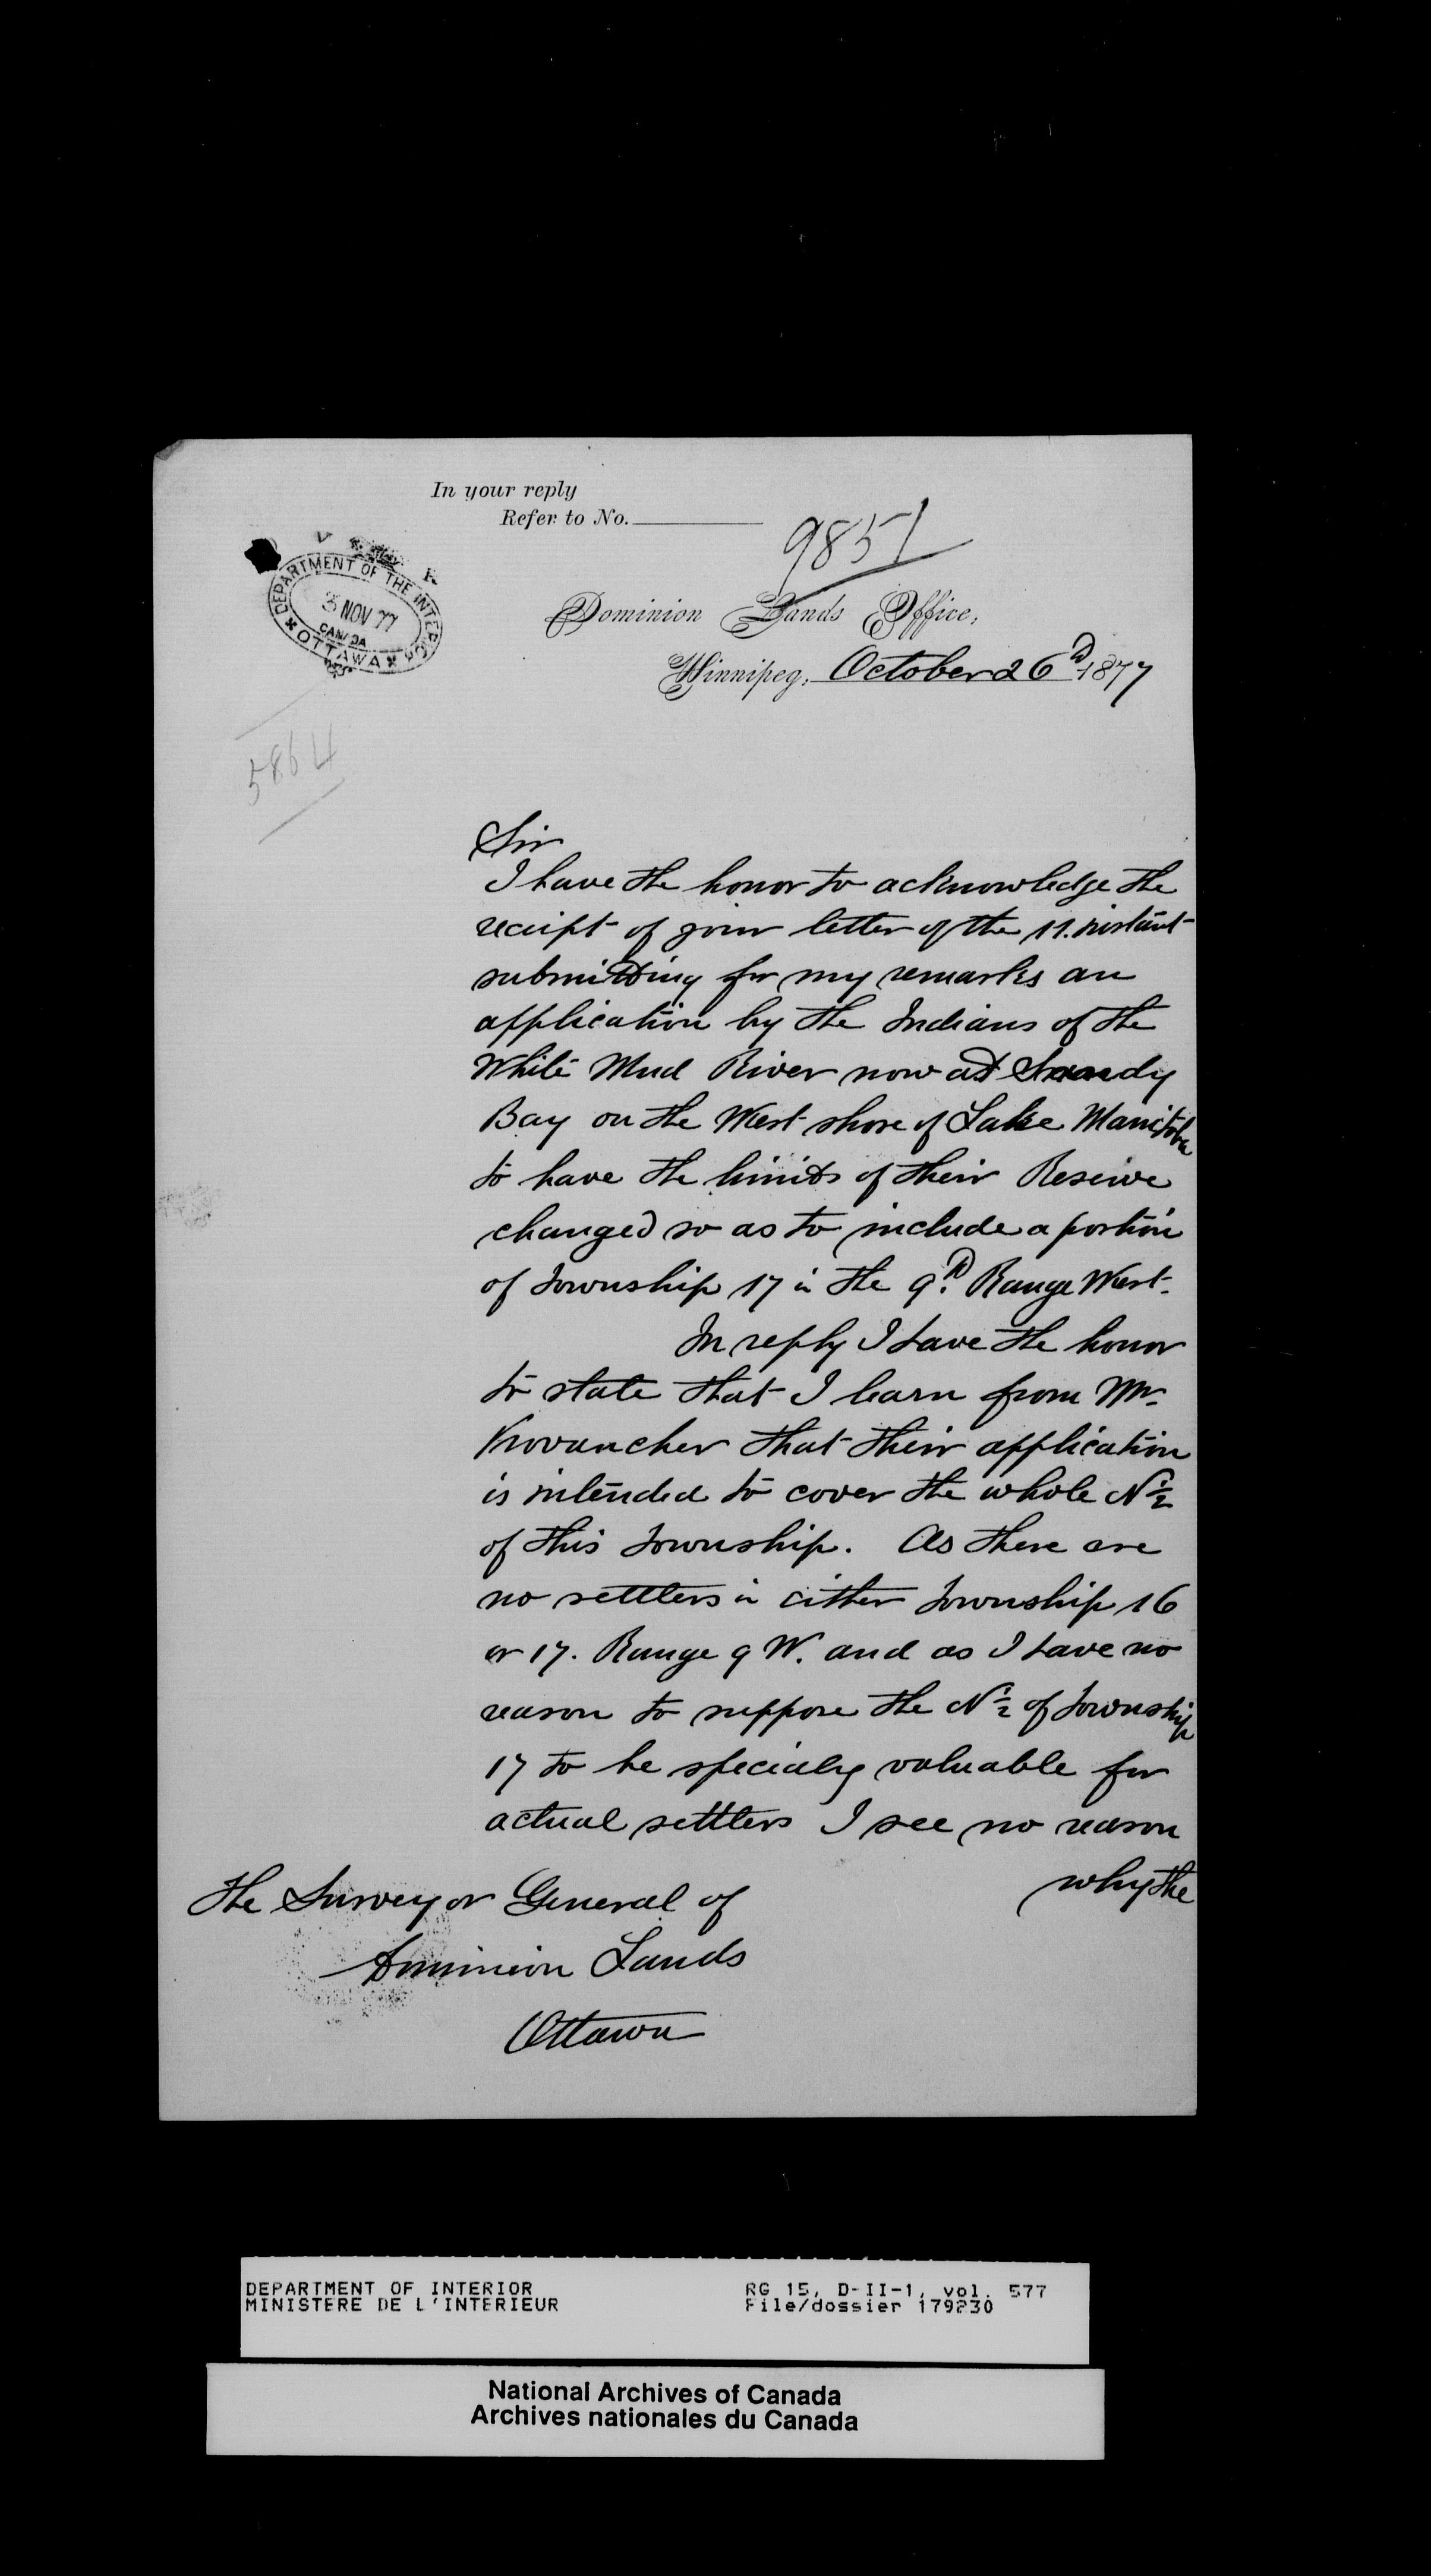 In your reply
Refer to No.
9851
DEPARTMENT OF THE INTERIOR
5 NOV 77
CANADA
OTTAWA
Dominion Lands Office,
Winnipeg, October 26th 1877
5864
Sir
I have the honor to acknowledge the
receipt of your letter of the 11. instant
submitting for my remarks an
application by the Indians of the
White Mud River now at Sandy
Bay on the West shore of Lake Manitoba
to have the limits of their Reserve
changed so as to include a portion
of Township 17 in the 9th Range West.
In reply I have the honor
to state that I learn from Mr.
Provancher that their application
is intended to cover the whole N½
of this Township. As there are
no settlers in either Township 16
or 17. Range 9 W. and as I have no
reason to suppose the N½ of Township
17 to be specialy valuable for
actual settlers I see no reason
why the
The Surveyor General of
Dominion Lands
Ottawa
DEPARTMENT OF INTERIOR
MINISTERE DE L'INTERIEUR
RG 15, D-II-1, vol. 577
File/dossier 179230
National Archives of Canada
Archives nationales du Canada